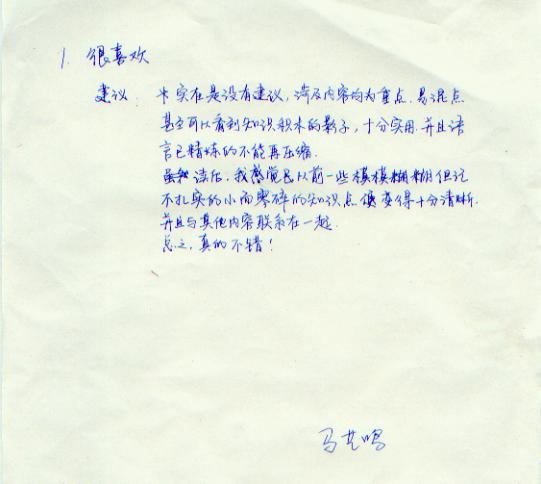 1. 很喜欢
建议: 实在是没有建议,涉及内容均为重点、易混点
甚至可以看到知识积木的影子,十分实用.并且语
言已精炼的不能再压缩.
读后,我感觉已以前一些模模糊糊但记
不扎实的小而零碎的知识点 变得十分清晰.
并且与其他内容联系在一起.
总之,真的不错!
马 鸣